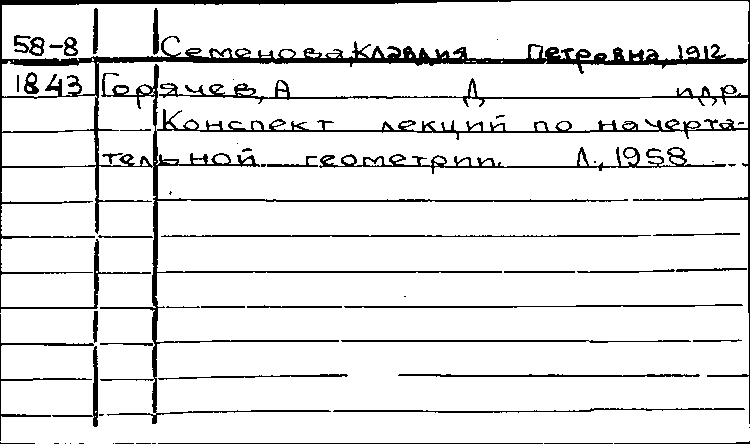 58-8 Семенова, Клавдия Петровна, 1912
1843 Горячев, А Д и др.
Конспект лекций по начерта-
тельной геометрии. Л., 1958